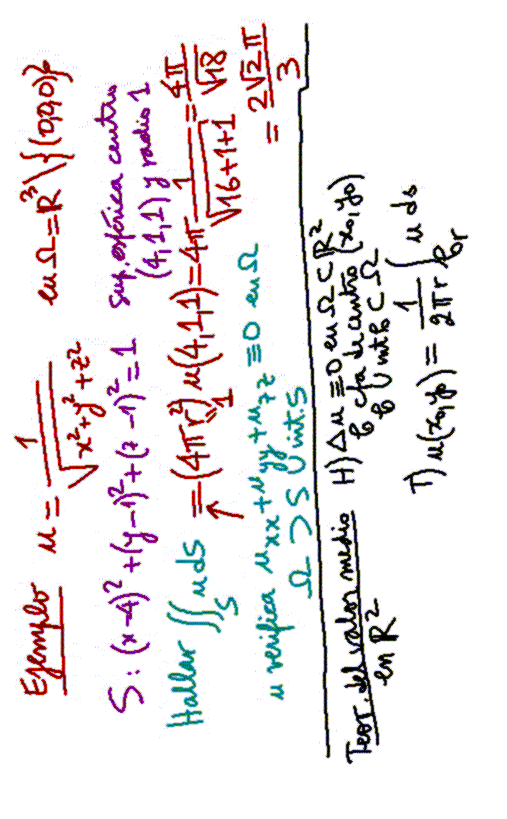 Ejemplo u = 1/√(x²+y²+z²) en Ω = R³ \ {(0,0,0)}
S : (x-4)² + (y-1)² + (z-1)² = 1 sup. esférica centro (4,1,1) y radio 1
Hallar ∬_S u ds = (4πr²) u(4,1,1) = 4π 1/√(16+1+1) = 4π/√18
1
= 2√2π/3
u verifica u_xx + u_yy + u_zz ≡ 0 en Ω
Ω ⊃ S ∪ int. S
Teor. del valor medio en R²
H) Δu ≡ 0 en Ω ⊂ R²
b cfa de centro (x₀,y₀)
b ∪ int b ⊂ Ω
T) u(x₀,y₀) = 1/(2πr) ∫_br u ds